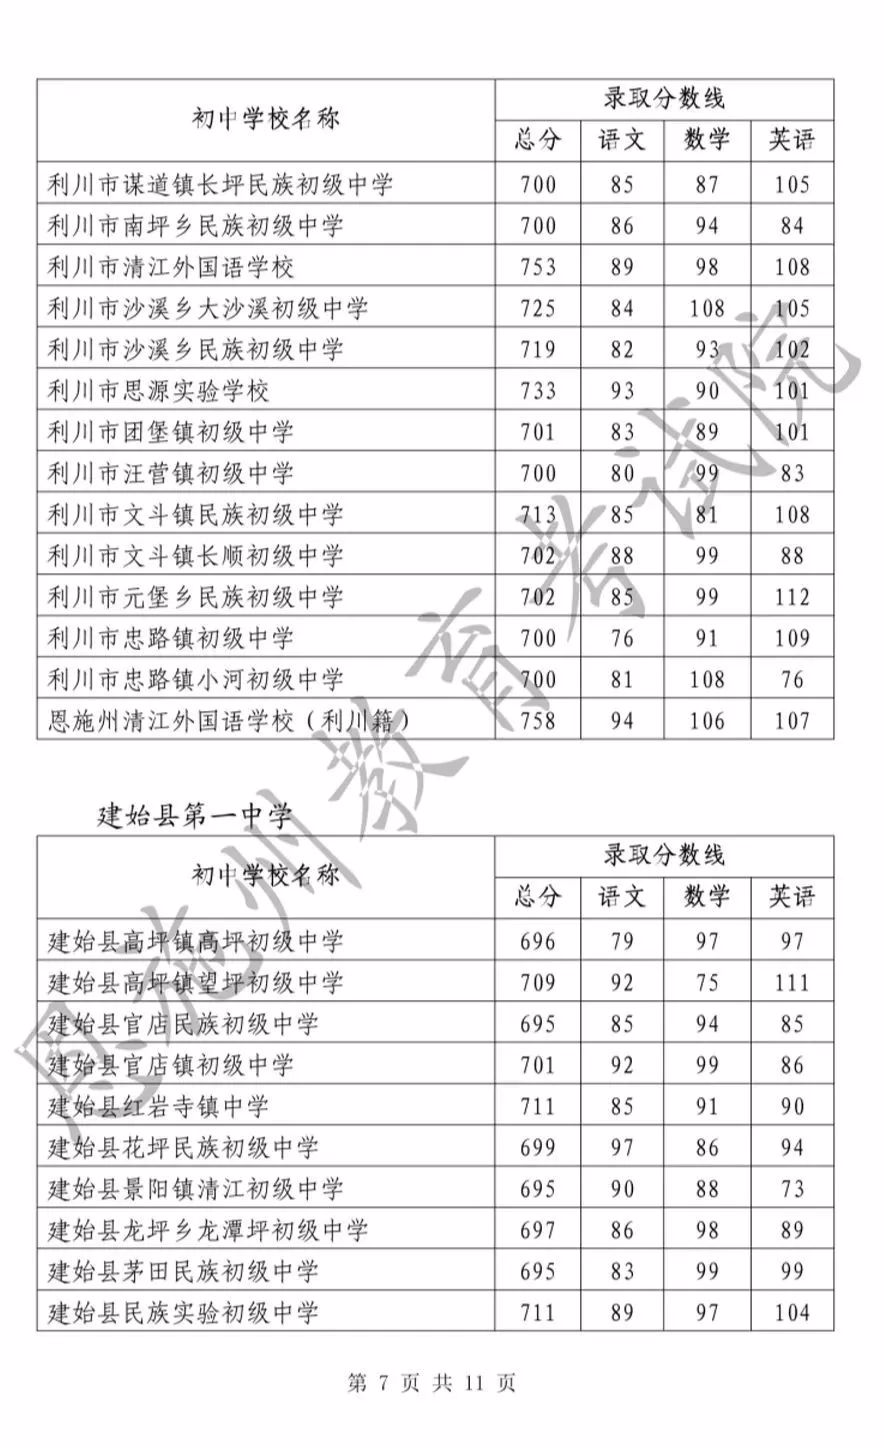 初中学校名称 录取分数线
总分 语文 数学 英语
利川市谋道镇长坪民族初级中学 700 85 87 105
利川市南坪乡民族初级中学 700 86 94 84
利川市清江外国语学校 753 89 98 108
利川市沙溪乡大沙溪初级中学 725 84 108 105
利川市沙溪乡民族初级中学 719 82 93 102
利川市思源实验学校 733 93 90 101
利川市团堡镇初级中学 701 83 89 101
利川市汪营镇初级中学 700 80 99 83
利川市文斗镇民族初级中学 713 85 81 108
利川市文斗镇长顺初级中学 702 88 99 88
利川市元堡乡民族初级中学 702 85 99 112
利川市忠路镇初级中学 700 76 91 109
利川市忠路镇小河初级中学 700 81 108 76
恩施州清江外国语学校（利川籍） 758 94 106 107
建始县第一中学
初中学校名称 录取分数线
总分 语文 数学 英语
建始县高坪镇高坪初级中学 696 79 97 97
建始县高坪镇望坪初级中学 709 92 75 111
建始县官店民族初级中学 695 85 94 85
建始县官店镇初级中学 701 92 99 86
建始县红岩寺镇中学 711 85 91 90
建始县花坪民族初级中学 699 97 86 94
建始县景阳镇清江初级中学 695 90 88 73
建始县龙坪乡龙潭坪初级中学 697 86 98 89
建始县茅田民族初级中学 695 83 99 99
建始县民族实验初级中学 711 89 97 104
第 7 页 共 11 页
恩施州教育考试院